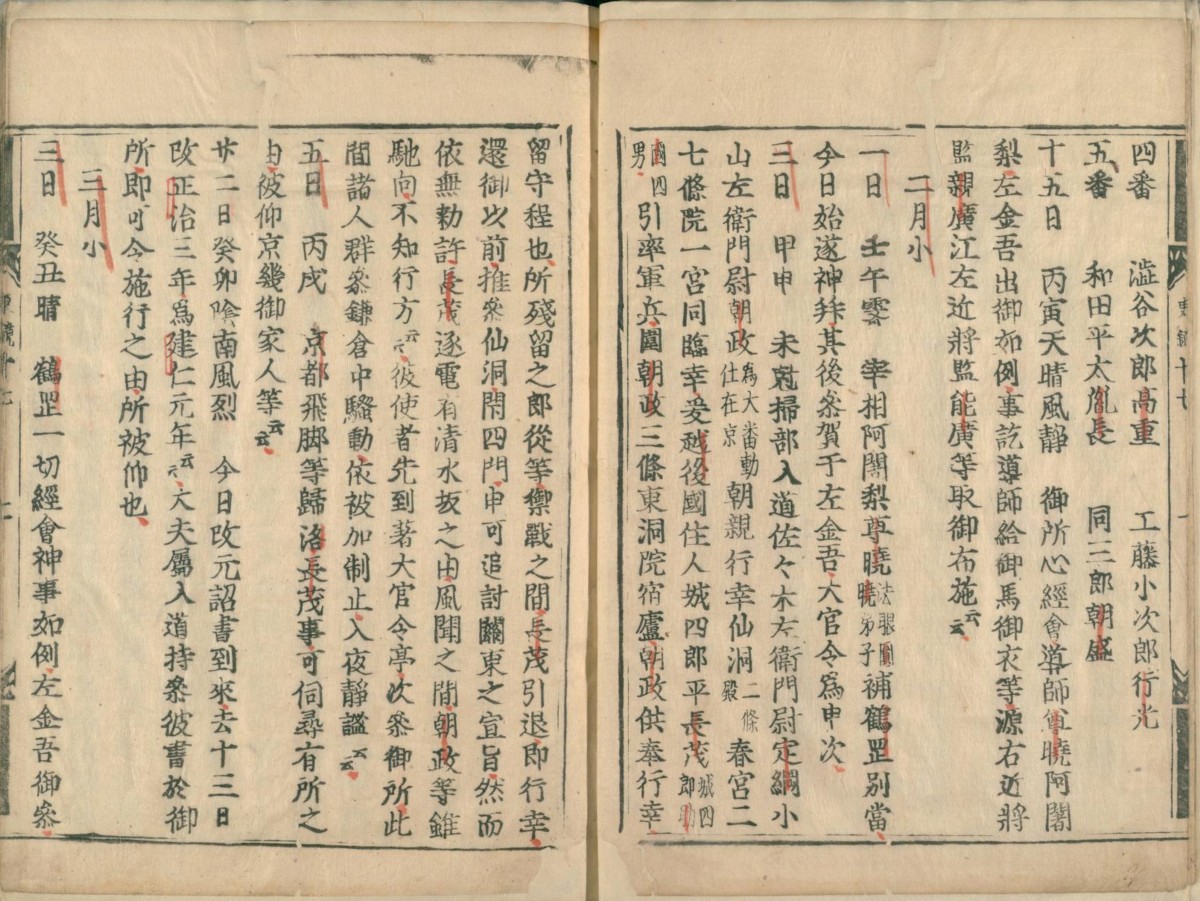 四番 澁谷次郎高重 工藤小次郎行光
五番 和田平太胤長 同三郎朝盛
十五日 丙寅天晴風靜 御所心經會導師尊曉阿闍
梨左金吾出御如例事訖導師給御馬御衣等源右近將
監親廣江左近將監能廣等取御布施云云
二月小
一日 壬午霽 宰相阿闍梨尊曉法眼圓曉弟子補鶴罡別當
今日始遂神拜其後參賀于左金吾大官令爲申次
三日 甲申 未尅掃部入道佐々木左衛門尉定綱小
山左衛門尉朝政爲大番勤仕在京朝親行幸仙洞二條殿春宮二
七條院一宮同臨幸爰越後國住人城四郎平長茂城四郎助
國四男引率軍兵圍朝政三條東洞院宿廬朝政供奉行幸
留守程也所殘留之郎從等禦戰之間長茂引退即行幸
還御以前推參仙洞閇四門申可追討關東之宣旨然而
依無勅許長茂逐電有清水坂之由風聞之間朝政等雖
馳向不知行方云々彼使者先到著大官令亭次參御所此
間諸人群參鎌倉中騒動依被加制止入夜靜謐云云
五日 丙戌 京都飛脚等歸洛長茂事可伺尋有所之
由彼仰京畿御家人等云云
廿二日癸卯陰南風烈 今日改元詔書到來去十三日
改正治三年爲建仁元年云々大夫屬入道持參彼書於御
所即可令施行之由所被仰也
三月小
三日 癸丑晴 鶴罡一切經會神事如例左金吾御參